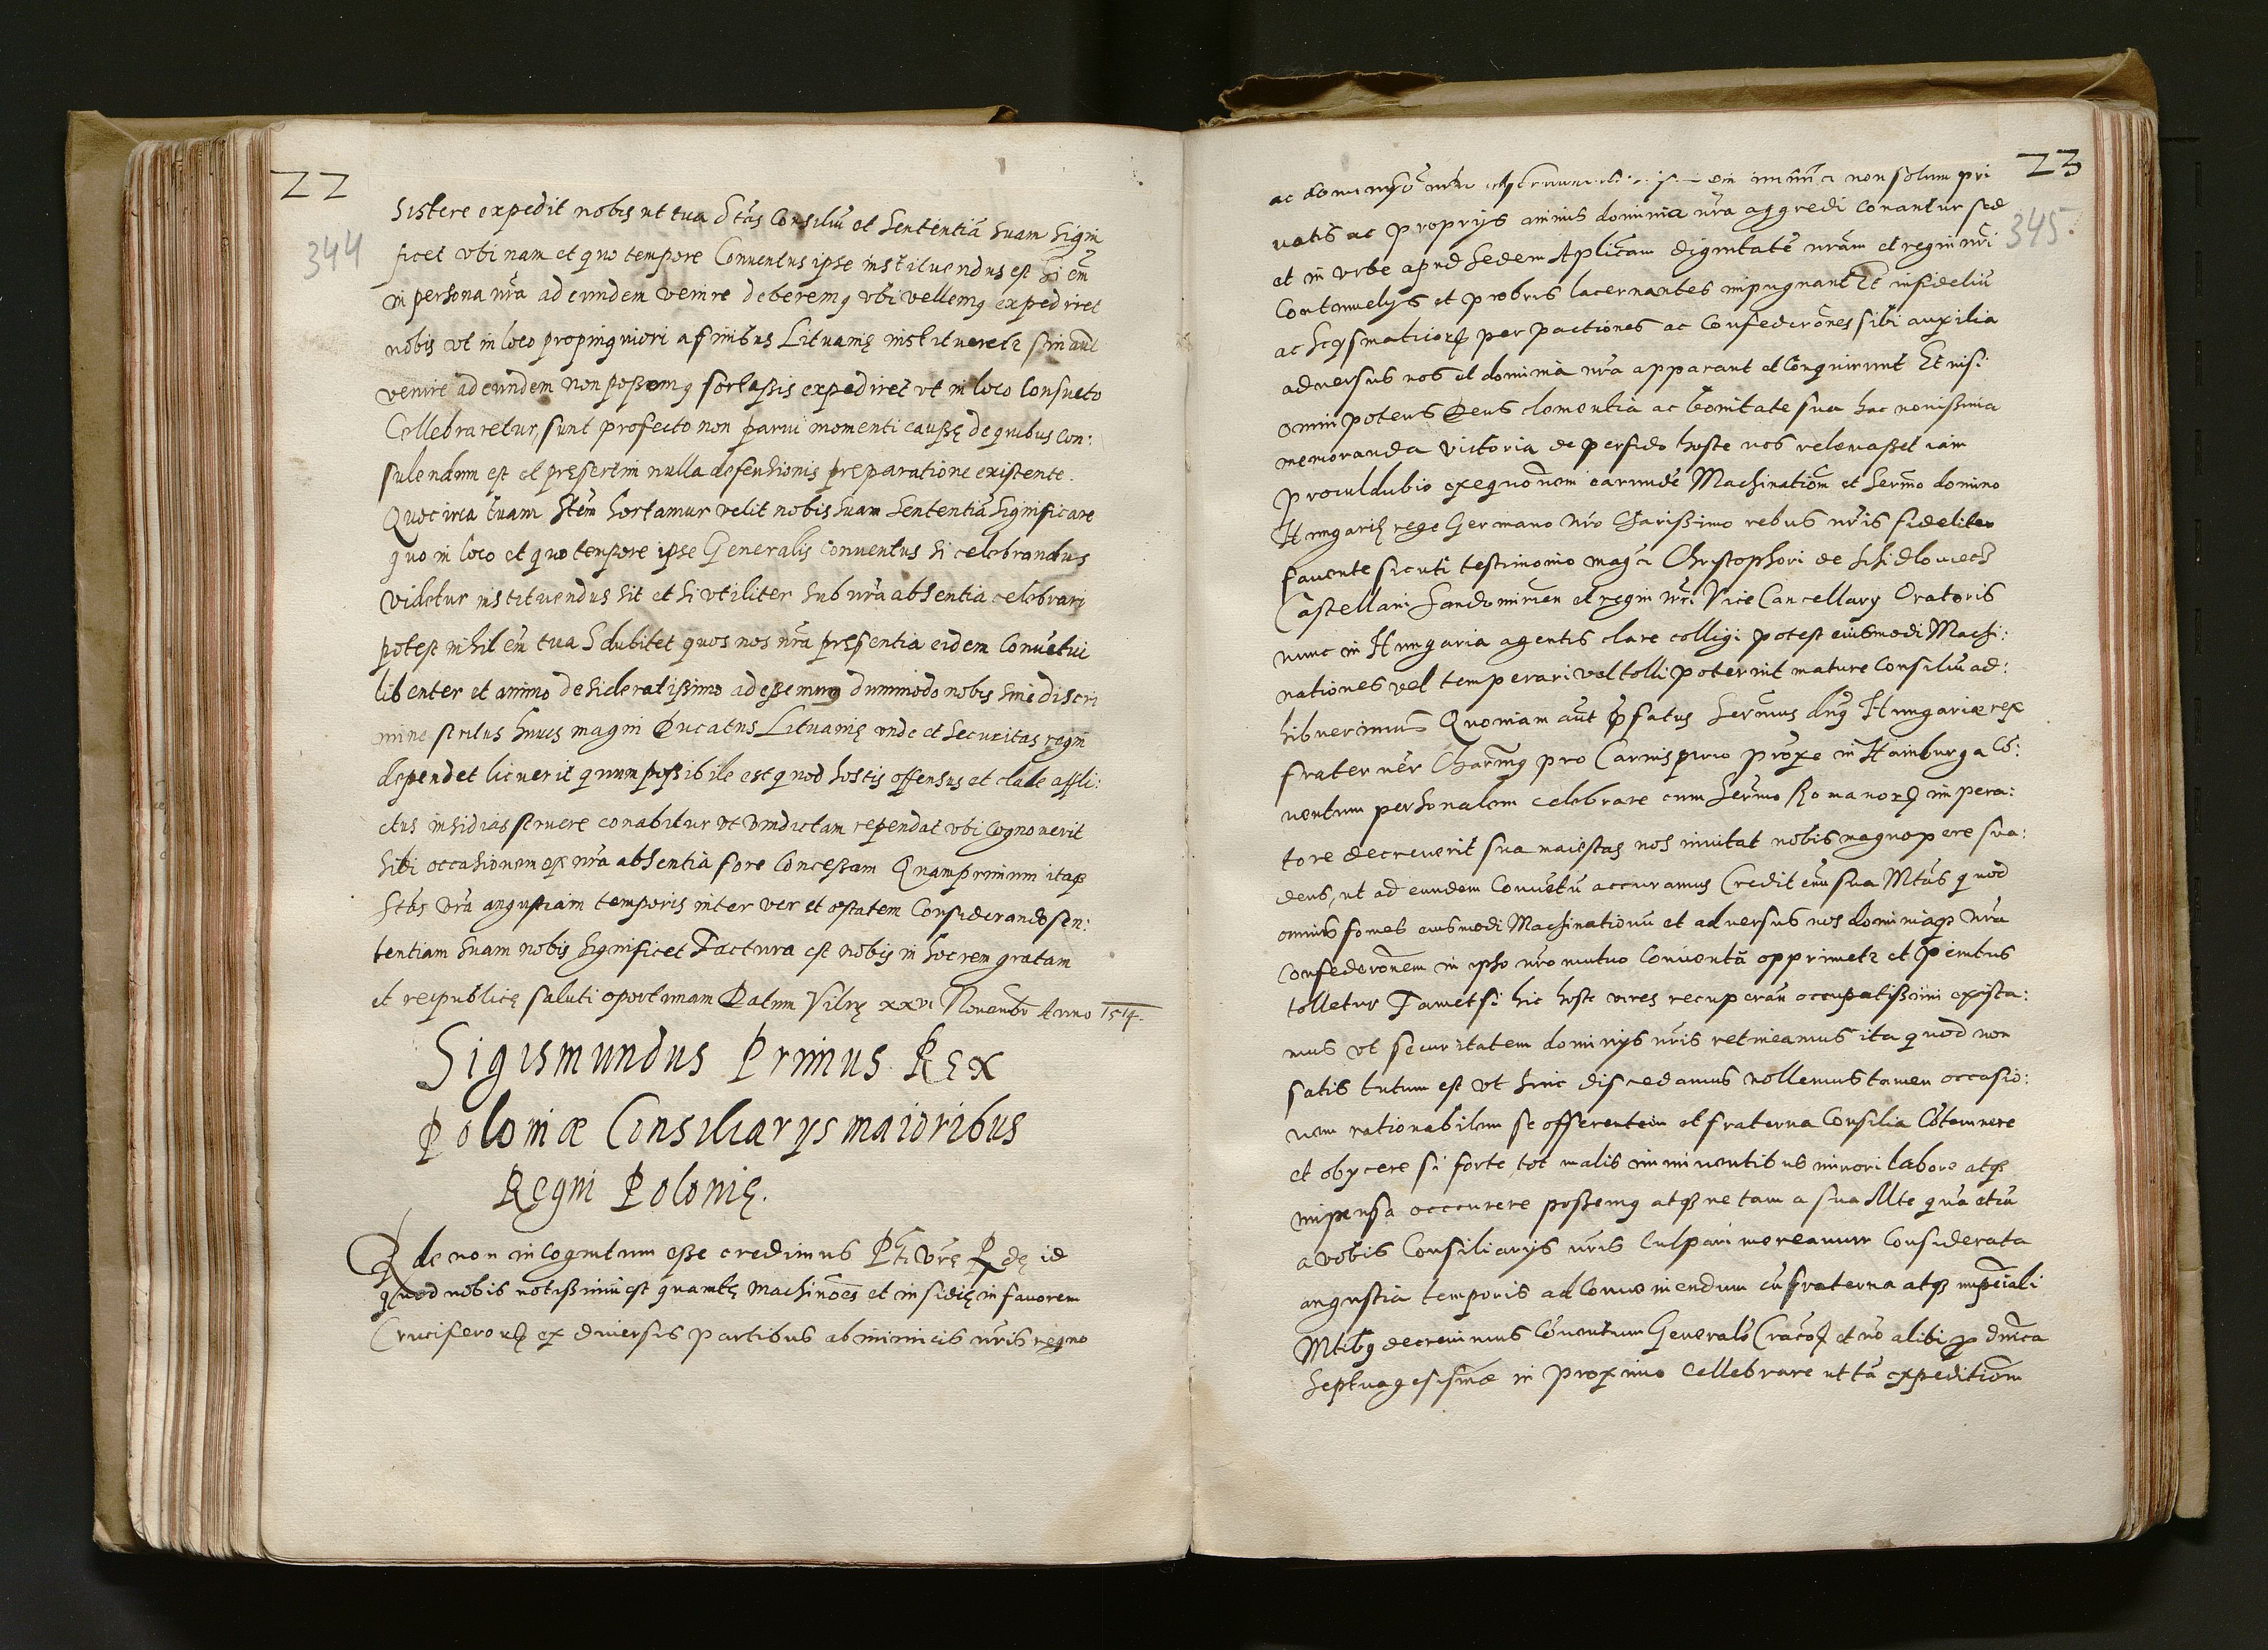 22
344
sistere expedit nobis ut tua Stas Consiliū et sententiā suam signi
ficet ubi nam et quo tempore Conventus ipse instituendus est Si em̄
in persona nrā ad eundem venire deberemq ubi vellemq expediret
nobis ut in loco propinquiori a finibus Lituanię institueretr sin aut
venire ad eundem non possemq fortassis expediret ut in loco Consueto
Cellebraretur, sunt profecto non parvi momenti caussę de quibus con:
sulendum est et presertim nulla defensionis preparatione existente.
Quocirca tuam Stēm hortamur velit nobis suam sententiā significare
quo in loco et quo tempore ipse Generalis conventus si celebrandus
videtur instituendus sit et si utiliter sub nrā absentia celebrari
potest nihil em̄ tua S dubitet quos nos nrā presentia eidem Convētui
libenter et animo desideratissimo adessemus dummodo nobis sine discri
mine status huius magni Ducatus Lituanię unde et securitas regni
dependet licuerit quum possibile est quod hostis offensus et clade affli:
ctus insidias struere conabitur ut vindictam rependat ubi cognoverit
sibi occasionem ex nrā absentia fore Concessam Quamprimum itaq
Stas vrā angustiam temporis inter ver et estatem Considerando sen:
tentiam suam nobis significet Factura est nobis in hoc rem gratam
et reipublicę saluti oportunam Datum Vilnę xxvi Novembr Anno 1514.
Sigismundus Primus Rex
Poloniæ Consiliarijs maioribus
Regni Polonię.
de non incognitum esse credimus Ptī Vrę R dę id
quod nobis notissimū est quantę machinōes et insidię in favorem
Cruciferorū ex diversis partibus ab inimicis nrīs regno
23
345.
ac nrō non solum pri
vatis ac proprijs animis dominia nrā aggredi conantur sed
et in urbe apud sedem Aplicam dignitatē nrām et regni nrī
Contumelijs et probris lacernantes impugnant Et infideliū
ac scysmaticorū per pactiones ac Confederōnes sibi auxilia
adversus nos et dominia nrā apparant et conquirunt Et nisi
omnipotens Deus clementia ac bonitate sua hac novissima
memoranda victoria de perfido hoste nos relevasset iam
proculdubio exequonem earumdē Machinatiōm et Sermo domino
Hungarię rege Germano nrō Charissimo rebus nrīs fideliter
favente sicuti testimonio magci Christophori de Schidloviecz
Castellani Sandomirien et regni nrī Vice Cancellary Oratoris
nunc in Hungaria agentis clare colligi potest eiusmodi Machi:
nationes vel temperari vel tolli poterint mature Consiliū ad:
hibuerimus Quoniam aut pfatus Sermus dnq Hungariæ rex
frater nēr Charmq pro Carnisprivio proxe in Hainburga Cō:
ventum personalem celebrare cum Sermo Romanorū impera:
tore decreverit sua maiestas nos invitat nobis magnopere sua:
dens, ut ad eundem Convētū accuramus Credit enī sua Mtas quod
omnis fomes eiusmodi Machinationū et adversus nos dominiaq nrā
Confederōnem in ipso nrō mutuo Conventū opprimetr et penitus
tolletur Tametsi hic hoste vires recuperān occupatissimi exista:
mus ut securitatem dominijs nrīs retineamus ita quod non
satis tutum est ut hinc discedamus nollemus tamen occasio:
nem rationabilem se offerentem et fraterna Consilia Cōtemnere
et obijcere si forte tot malis imminentibus minori labore atq
impensa occurrere possemq atq ne tam a sua Mte quā etiā
a vobis Consiliarijs nrīs Culpari mereamur Considerata
angustia temporis ad Conveniendum cū fraterna atq imperiali
Mtibq decrevimus Cōventum Generalē Cracoę et nō alibi p dnīca
Septuagesismæ in proximo Cellebrare ut tā expeditiōm